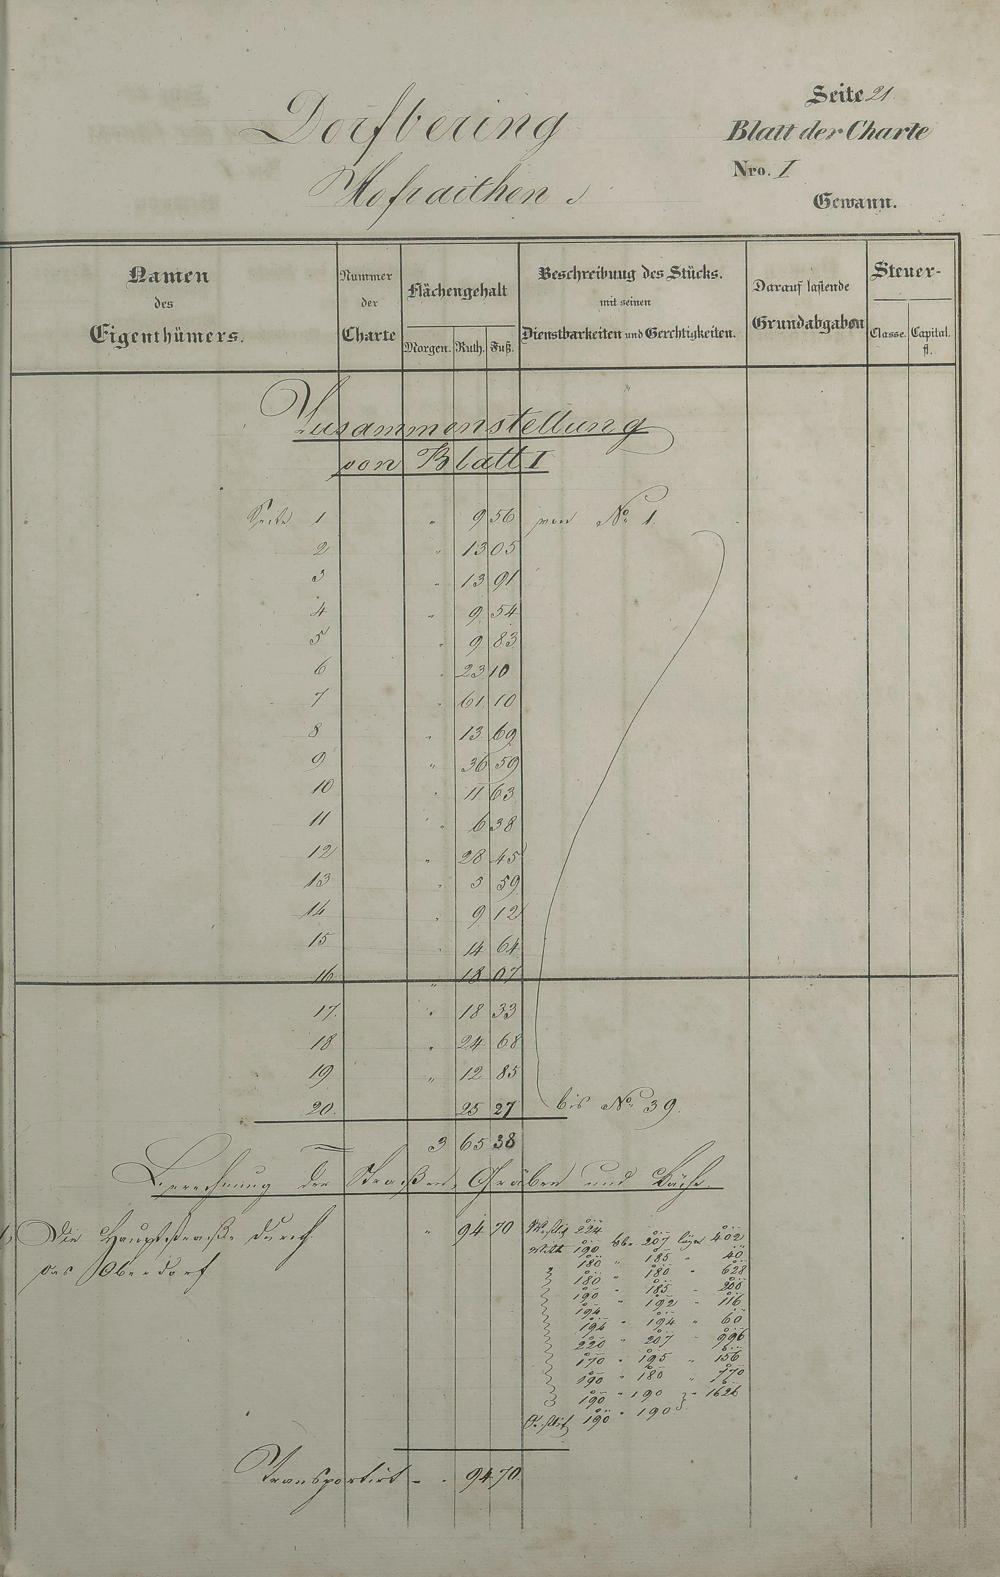 Dorfbering
Hofraithen
Seite 21.
Blatt der Charte
Nro. I
Gewann.
Namen
des
Eigenthümers.
Nummer
der
Charte
Flächengehalt
Morgen. Ruth. Fuß.
Beschreibung des Stücks.
mit seinen
Dienstbarkeiten und Gerchtigkeiten.
Darauf lastende
Grundabgaben
Steuer-
Classe. Capital.
fl.
Zusammenstellung
von Blatt I
Seite 1 " 9 56 von No. 1.
2 " 13 05
3 " 13 91
4 " 9 54
5 " 9 83
6 " 23 10
7 " 61 10
8 " 13 69
9 " 36 59
10 " 11 63
11 " 6 38
12 " 28 45
13 " 5 59
14 " 9 12
15 14 64
16 " 18 07
17. " 18 33
18 " 24 68
19 " 12 85
20. 25 27 bis No. 39.
3 65 38
Berechnung der Straßen, Gräben und Bäche.
1, Die Hauptstraße durch " 94 70
das Oberdorf
224
190 207 402
180 " 185 " 40
180 " 180 " 628
190 " 185 " 200
194 " 192 " 116
194 " 194 " 60
220 " 207 " 996
170 " 195 " 156
190 " 180 " 770
190 " 190 " 1626
190 " 190
Transportirt - - 94 70